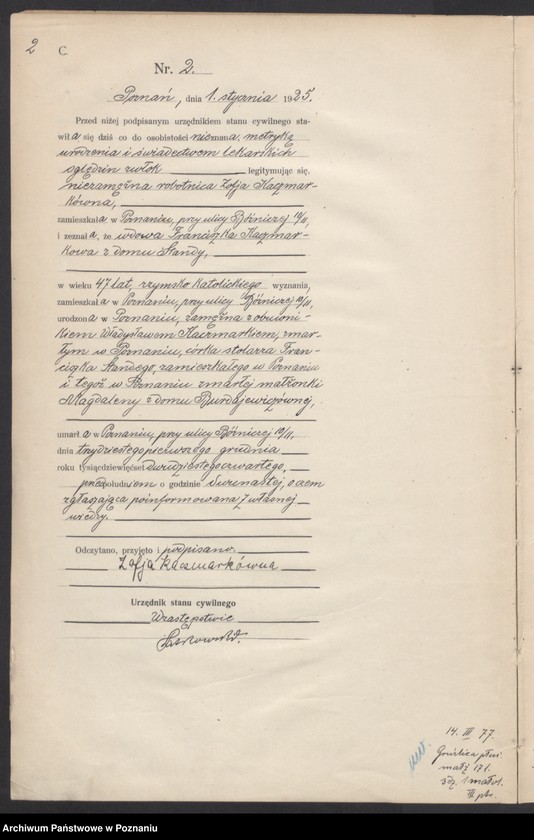 2 C.
Nr. 2.
Poznań, dnia 1. stycznia 1925.
Przed niżej podpisanym urzędnikiem stanu cywilnego sta-
wiła się dziś co do osobistości nieznana, metryką
urodzenia i świadectwem lekarskich
oględzin zwłok legitymując się,
niezamężna robotnica Zofja Kaczmar-
kówna,
zamieszkała w Poznaniu, przy ulicy Bóżniczej 10/11,
i zeznała, że wdowa Franciszka Kaczmar-
kowa z domu Standy,
w wieku 47 lat, rzymsko katolickiego wyznania,
zamieszkała w Poznaniu, przy ulicy Bóżniczej 10/11,
urodzona w Poznaniu, zamężna z obuoni-
kiem Władysławem Kaczmarkiem, zmar-
łym w Poznaniu, córka stolarza Fran-
ciszka Standego, zamieszkałego w Poznaniu
i tegoż w Poznaniu zmarłej małżonki
Magdaleny z domu
umarła w Poznaniu, przy ulicy Bóżniczej 10/11,
dnia trzydziestegopierwszego grudnia
roku tysiącdziewięćset dwudziestegoczwartego,
przedpołudniem o godzinie dwunastej, o czem
zgłaszająca poinformowana z własnej
wiedzy.
Odczytano, przyjęto i podpisano.
Zofja Kaczmarkówna
Urzędnik stanu cywilnego
W zastępstwie
14. III 77.
Gruźlica płuc
małż 17 l.
3 dz. 1 małol.
III
Archiwum Państwowe w Poznaniu